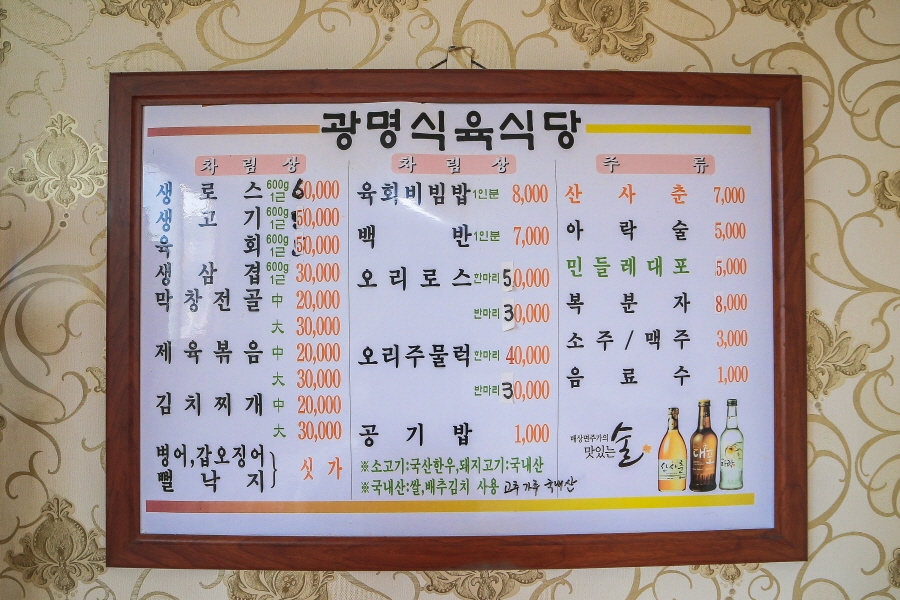 광명식육식당
차림상
생로스 600g 1근 60,000
생고기 600g 1근 50,000
육회 600g 1근 50,000
생삼겹 600g 1근 30,000
막창전골 中 20,000
大 30,000
제육볶음 中 20,000
大 30,000
김치찌개 中 20,000
大 30,000
병어,갑오징어
뻘낙지 } 싯가
차림상
육회비빔밥 1인분 8,000
백반 1인분 7,000
오리로스 한마리 50,000
반마리 30,000
오리주물럭 한마리 40,000
반마리 30,000
공기밥 1,000
※소고기:국산한우,돼지고기:국내산
※국내산:쌀,배추김치 사용 고추가루 국내산
주류
산사춘 7,000
아락술 5,000
민들레대포 5,000
복분자 8,000
소주/맥주 3,000
음료수 1,000
배상면주가의
맛있는 술
산사춘
대포